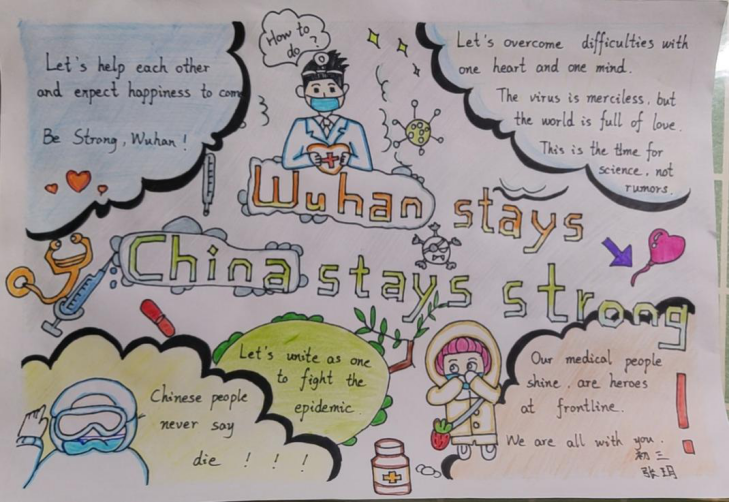 Let's help each other
and expect happiness to come
Be Strong, Wuhan !
How to
do ?
Let's overcome difficulties with
one heart and one mind.
The virus is merciless, but
the world is full of love.
This is the time for
science, not
rumors.
Wuhan stays
China stays strong
Let's unite as one
to fight the
epidemic
Chinese people
never say
die ! ! !
Our medical people
shine, are heroes
at frontline.
We are all with you.
初三
张玥